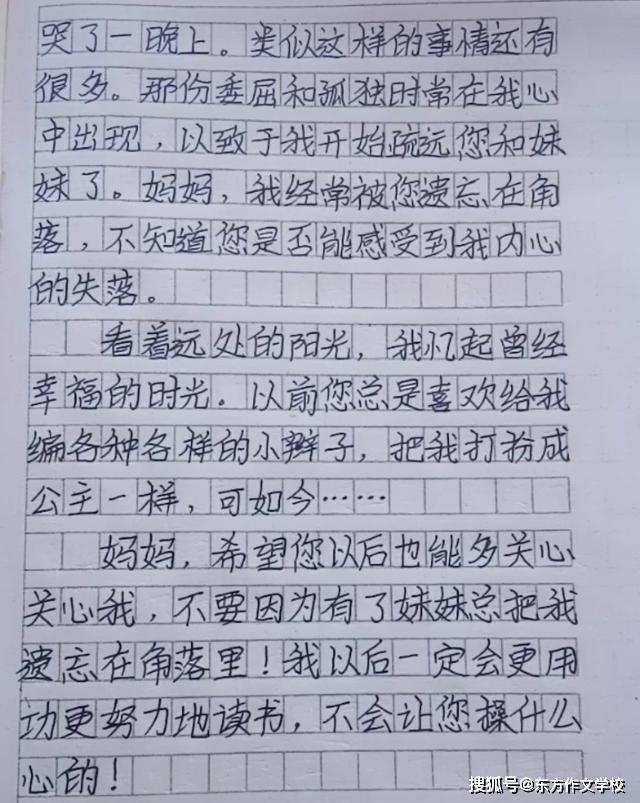 哭了一晚上。类似这样的事情还有
很多。那份委屈和孤独时常在我心
中出现，以致于我开始疏远您和妹
妹了。妈妈，我经常被您遗忘在角
落，不知道您是否能感受到我内心
的失落。
看着远处的阳光，我忆起曾经
幸福的时光。以前您总是喜欢给我
编各种各样的小辫子，把我打扮成
公主一样，可如今……
妈妈，希望您以后也能多关心
关心我，不要因为有了妹妹总把我
遗忘在角落里！我以后一定会更用
功更努力地读书，不会让您操什么
心的！
搜狐号@东方作文学校